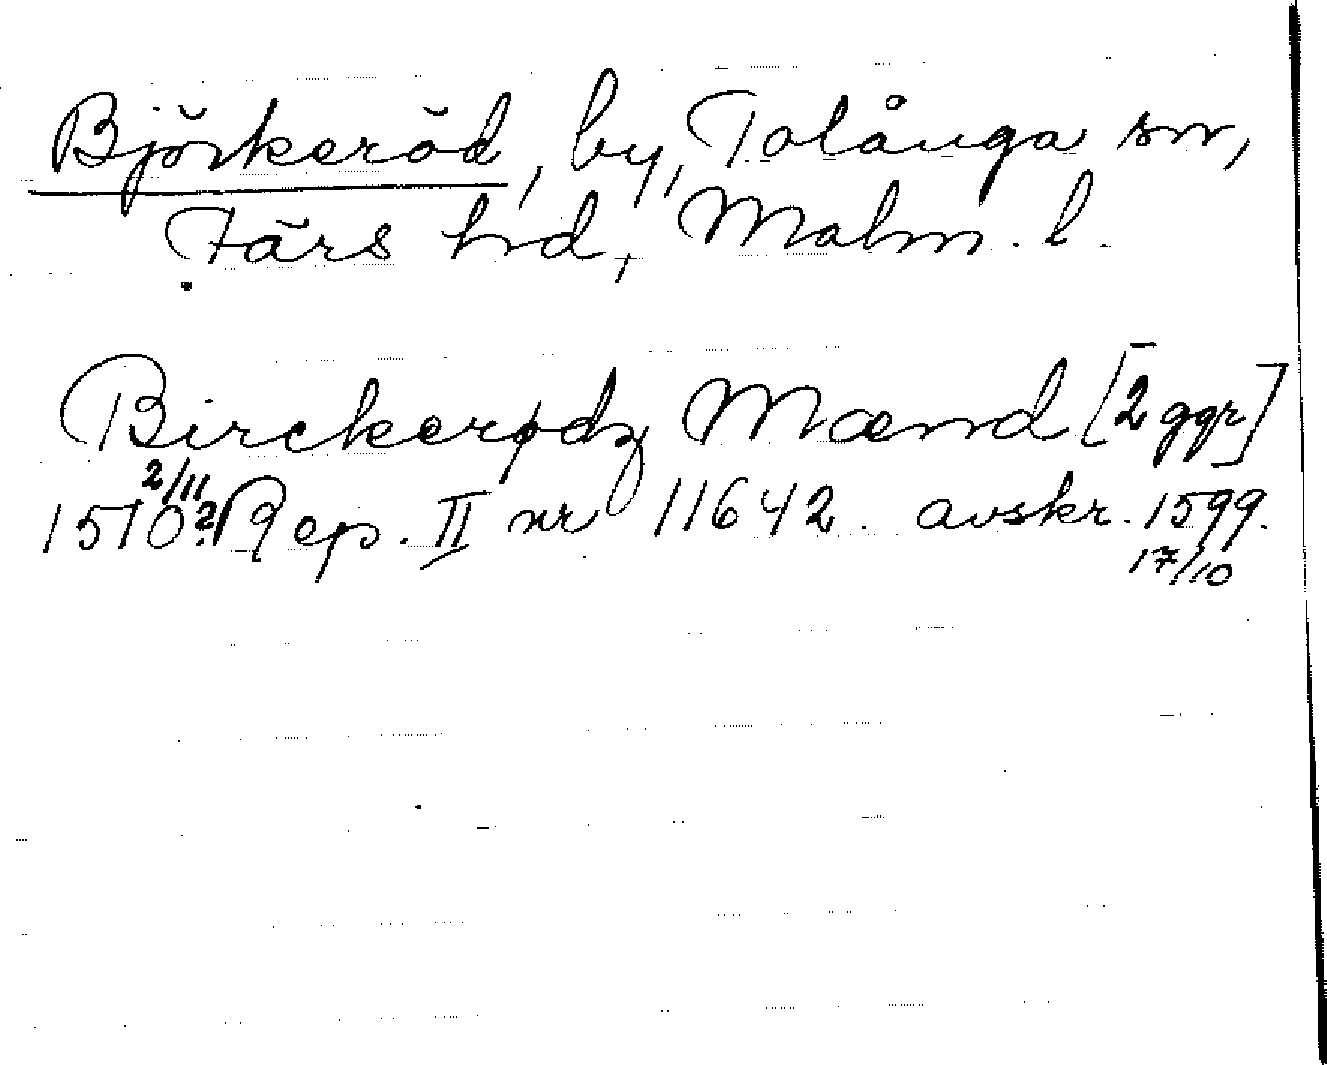 Björkeröd, by, Tolånga sn,
Färs hd, Malm. l.
Birckerødz Mænd [2 ggr]
2/11
1510? Rep. II nr 11642. avskr. 1599.
17/10